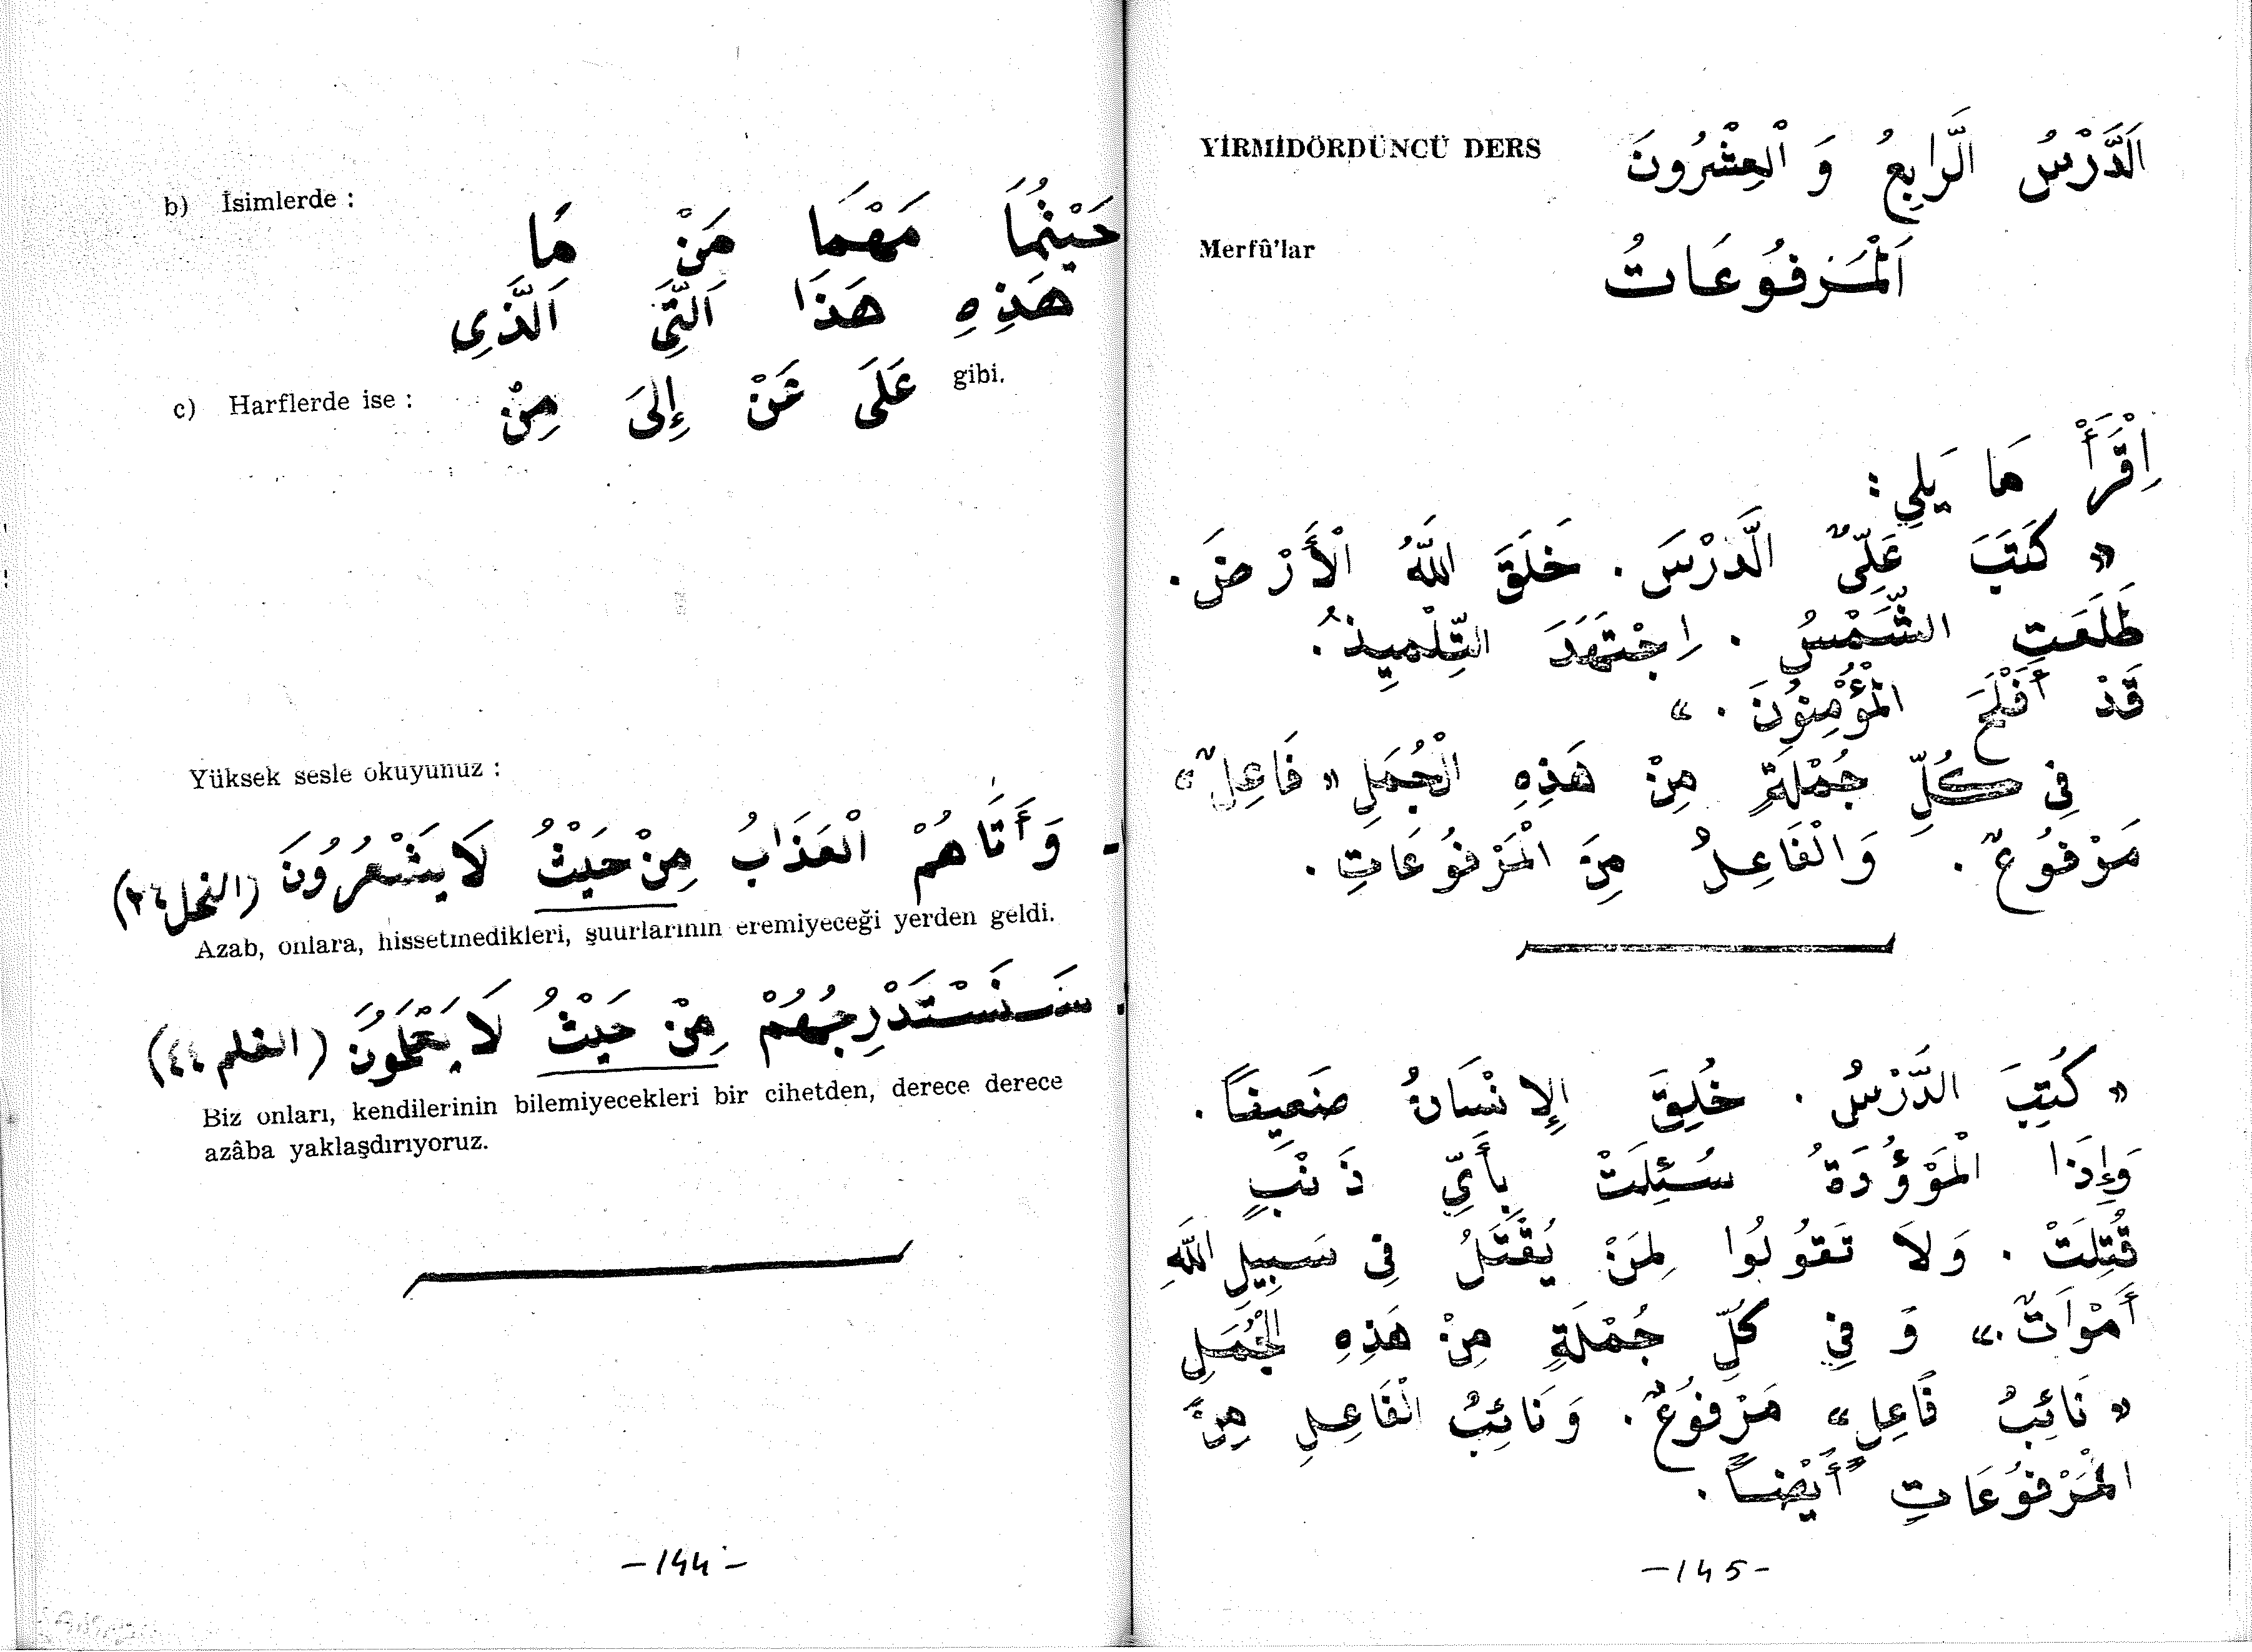 b) İsimlerde :
حَيْثُمَا مَهْمَا مَنْ مَا
هَذِهِ هَذَا اَلَّتِى اَلَّذِى
c) Harflerde ise : عَلَى عَنْ إِلَى مِنْ gibi.
Yüksek sesle okuyunuz :
- وَأَتَاهُمْ الْعَذَابُ مِنْ حَيْثُ لَا يَشْعُرُونَ (النحل ٢٤)
Azab, onlara, hissetmedikleri, şuurlarının eremiyeceği yerden geldi.
. سَنَسْتَدْرِجُهُمْ مِنْ حَيْثُ لَا يَعْلَمُونَ (القلم ٤٤)
Biz onları, kendilerinin bilemiyecekleri bir cihetden, derece derece
azâba yaklaşdırıyoruz.
-144-
YİRMİDÖRDÜNCÜ DERS اَلدَّرْسُ الَّرَابِعُ وَ الْعِشْرُونَ
Merfû'lar اَلْمَرْفُوعَاتُ
اِقْرَأْ مَا يَلِي :
« كَتَبَ عَلِىٌّ الَّدرْسَ . خَلَقَ اللَّهُ الْأَرْضَ .
طَلَعَتِ الشَّمْسُ . اِجْتَهَدَ التِّلْمِيذُ .
قَدْ أَفْلَحَ الْمُؤْمِنُونَ . »
فِى كُلِّ جُمْلَةٍ مِنْ هَذِهِ الْجُمَلِ « فَاعِلٌ »
مَرْفُوعٌ . وَالْفَاعِلُ مِنَ الْمَرْفُوعَاتِ .
« كُتِبَ الدَّرْسُ . خُلِقَ الإِنْسَانُ ضَعِيفاً .
وَإِذَا الْمَوْؤُدَةُ سُئِلَتْ بِأَىِّ ذَنْبٍ
قُتِلَتْ . وَلاَ تَقُولُوا لِمَنْ يُقْتَلُ فِى سَبِيلِ اللَّهِ
أَمْوَاتٌ . » وَ فِى كُلِّ جُمْلَةٍ مِنْ هَذِهِ الْجُمَلِ
« نَائِبُ فَاعِلٍ » مَرْفُوعٌ . وَنَائِبُ الْفَاعِلِ مِنَ
الْمَرْفُوعَاتِ أَيْضاً .
-145-